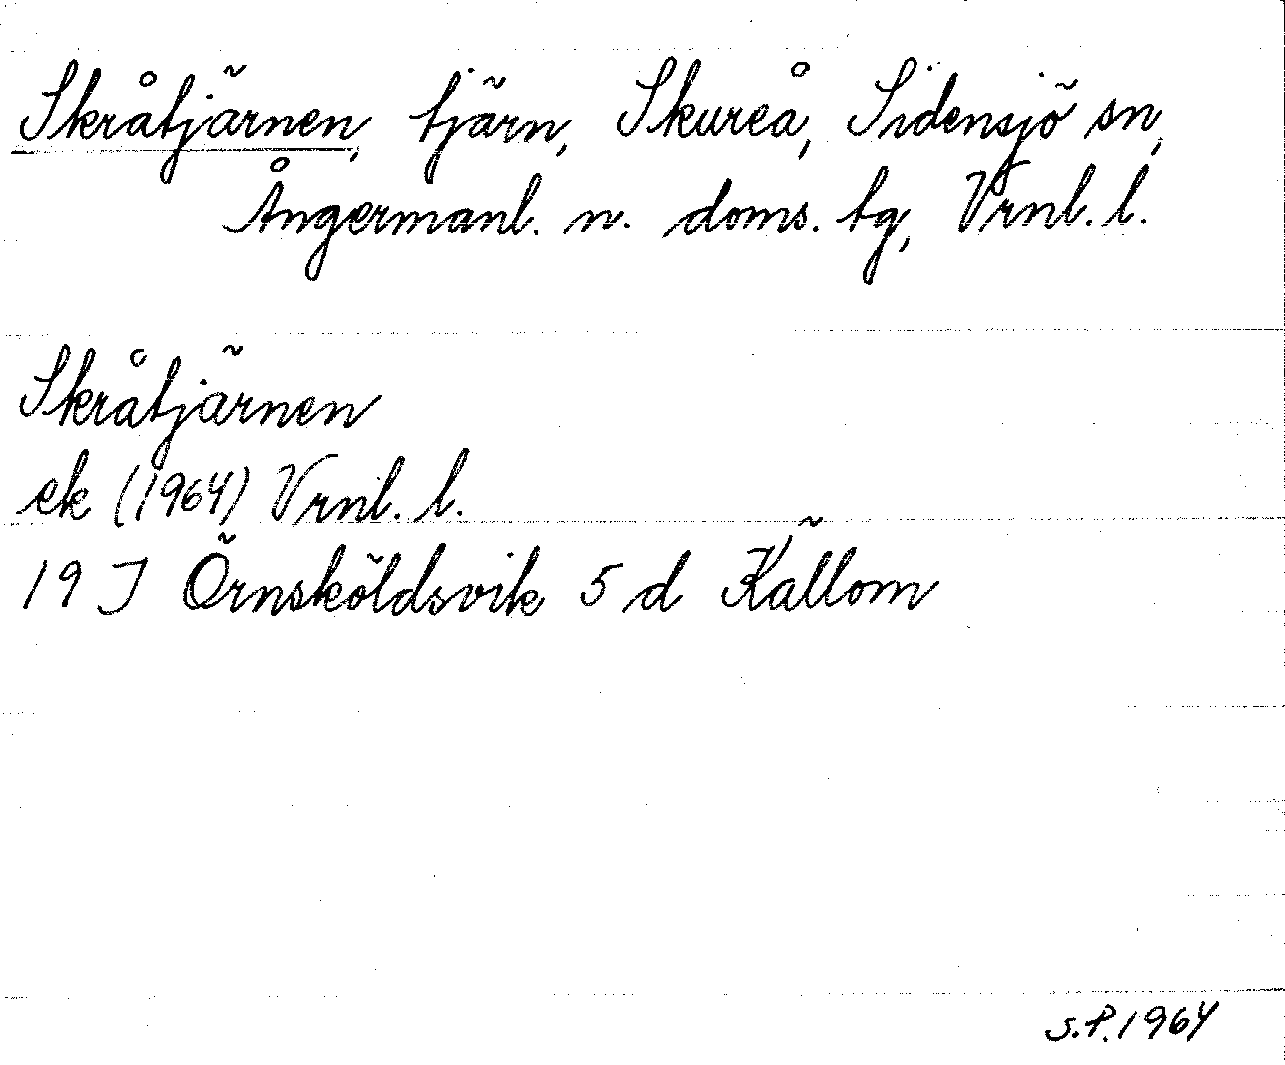 Skråtjärnen, tjärn, Skureå, Sidensjö sn,
Ångermanl. n. doms. tg, Vrnl. l.
Skråtjärnen
ek (1964) Vrnl. l.
19 J Örnsköldsvik 5 d Källom
S.P. 1964